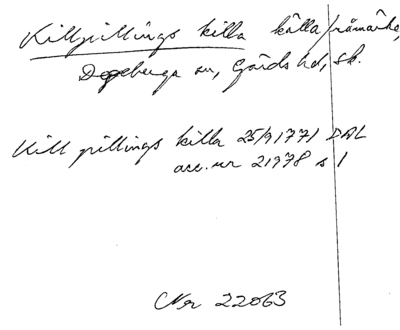 Killpillings killa källa/råmärke,
Degeberga sn, Gärds hd, Sk.
Kill pillings killa 25/9 1771 DAL
acc.nr 21978 s 1
Nr 22063